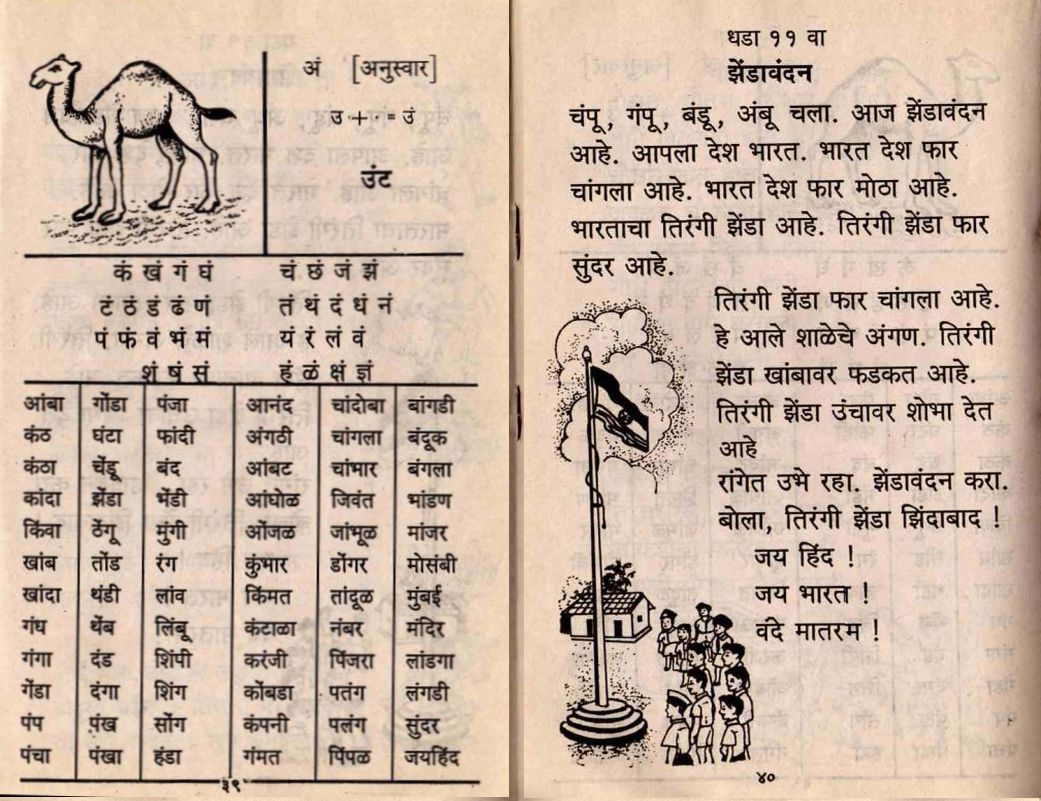 अं [अनुस्वार]
उ + ं = उं
उंट
कं खं गं घं चं छं जं झं
टं ठं डं ढं णं तं थं दं धं नं
पं फं वं भं मं यं रं लं वं
शं षं सं हं ळं क्षं ज्ञं
आंबा गोंडा पंजा आनंद चांदोबा बांगडी
कंठ घंटा फांदी अंगठी चांगला बंदूक
कंठा चेंडू बंद आंबट चांभार बंगला
कांदा झेंडा भेंडी आंघोळ जिवंत भांडण
किंवा ठेंगू मुंगी ओंजळ जांभूळ मांजर
खांब तोंड रंग कुंभार डोंगर मोसंबी
खांदा थंडी लांव किंमत तांदूळ मुंबई
गंध थेंब लिंबू कंटाळा नंबर मंदिर
गंगा दंड शिंपी करंजी पिंजरा लांडगा
गेंडा दंगा शिंग कोंबडा पतंग लंगडी
पंप पंख सोंग कंपनी पलंग सुंदर
पंचा पंखा हंडा गंमत पिंपळ जयहिंद
३९
धडा ११ वा
झेंडावंदन
चंपू, गंपू, बंडू, अंबू चला. आज झेंडावंदन
आहे. आपला देश भारत. भारत देश फार
चांगला आहे. भारत देश फार मोठा आहे.
भारताचा तिरंगी झेंडा आहे. तिरंगी झेंडा फार
सुंदर आहे.
तिरंगी झेंडा फार चांगला आहे.
हे आले शाळेचे अंगण. तिरंगी
झेंडा खांबावर फडकत आहे.
तिरंगी झेंडा उंचावर शोभा देत
आहे
रांगेत उभे रहा. झेंडावंदन करा.
बोला, तिरंगी झेंडा झिंदाबाद !
जय हिंद !
जय भारत !
वंदे मातरम !
४०